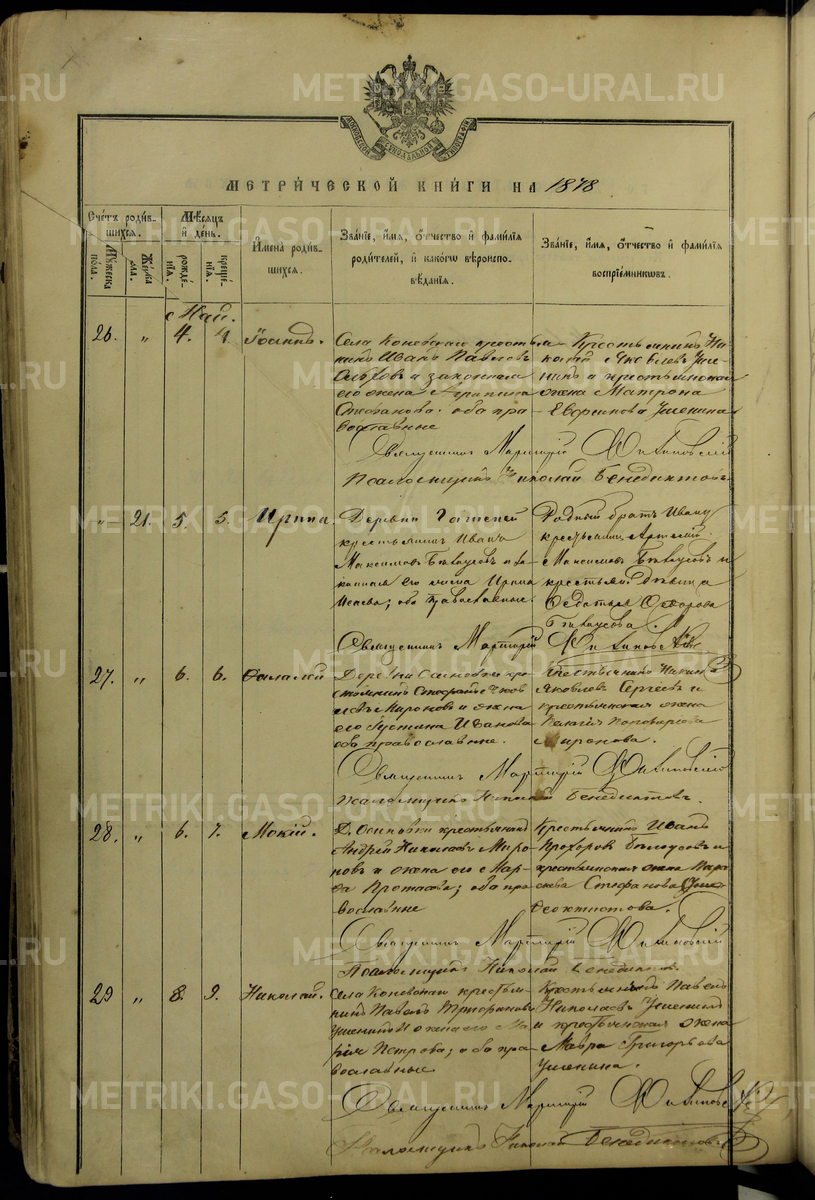 METRIKI.GASO-URAL.RU
МОСКОВСКОЙ СѴНОДАЛЬНОЙ ТИПОГРАФІИ
МЕТРИЧЕСКОЙ КНИГИ НА 1878
Счетъ родив-
шихся.
Мужеска
пола.
Женска
пола.
Мѣсяцъ
и день.
рожде-
нія.
креще-
нія.
Имена родив-
шихся.
Званіе, имя, отчество и фамилія
родителей, и какогѡ вѣроиспо-
вѣданія.
Званіе, имя, отчество и фамилія
воспріемникѡвъ.
Май.
26. „ 4. 4. Іоаннъ.
Села Коневскаго кресть-
янинъ Иванъ Павловъ
и законная
его жена Агрипина
Стефанова. оба пра-
вославные
Крестьянинъ Ни-
Яковлевъ Уше-
нинъ и крестьянская
жена Матрона
Ушенина
Священникъ Мартирій
Псаломщикъ Николай Бенедиктовъ
„ 21. 5. 5. Ирина.
Деревни
крестьянинъ Иванъ
Максимовъ Бѣлоусовъ и за-
конная его жена Ирина
Исаева; оба православные.
Родный братъ Ивану
крестьянинъ Артемій
Максимовъ Бѣлоусовъ и
крестьян. дѣвица
Ѳедорова
Бѣлоусова.
Священникъ Мартирій
27. „ 6. 6. Фалалей
Деревни кре-
стьянинъ
Мироновъ и жена
его Іустина Иванова
оба православные.
Крестьянинъ
Яковлевъ Сергеевъ и
крестьянская жена
Пелагія
Миронова.
Священникъ Мартирій
Псаломщикъ Николай Бенедиктовъ.
28. „ 6. 7. Мокій.
Д. Осиновки крестьянинъ
Андрей Николаевъ Миро-
новъ и жена его Мар-
ѳа Протасова; оба пра-
вославные
Крестьянинъ Иванъ
Прохоровъ Бѣлоусовъ и
крестьянская жена Пара-
скева Стефанова
Ѳеоктистова.
Священникъ Мартирій
Псаломщикъ Николай Бенедиктовъ.
29 „ 8. 9. Николай.
Села Коневскаго крестья-
нинъ Павелъ
Ушенинъ и жена его Ма-
рія Петрова; оба пра-
вославные
Крестьянинъ Павелъ
Николаевъ Ушенинъ
и крестьянская жена
Мавра Григорьева
Ушенина.
Священникъ Мартирій
Псаломщикъ Николай Бенедиктовъ